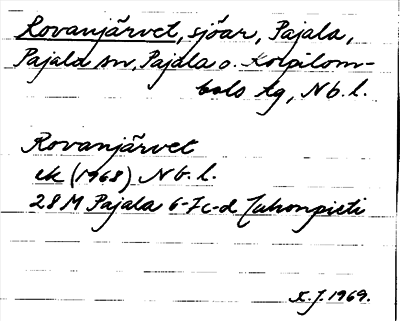 Rovanjärvet, sjöar, Pajala,
Pajala sn, Pajala o. Korpilom-
bolo tg, Nb. l.
Rovanjärvet
ek (1968) Nb. l.
28 M Pajala 6-7 c-d Juhonpieti
K. J. 1969.